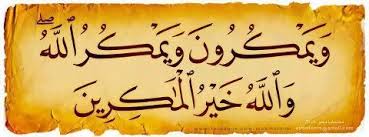 وَيَمْكُرُونَ وَيَمْكُرُ اللَّهُ ۖ
وَاللَّهُ خَيْرُ الْمَاكِرِينَ